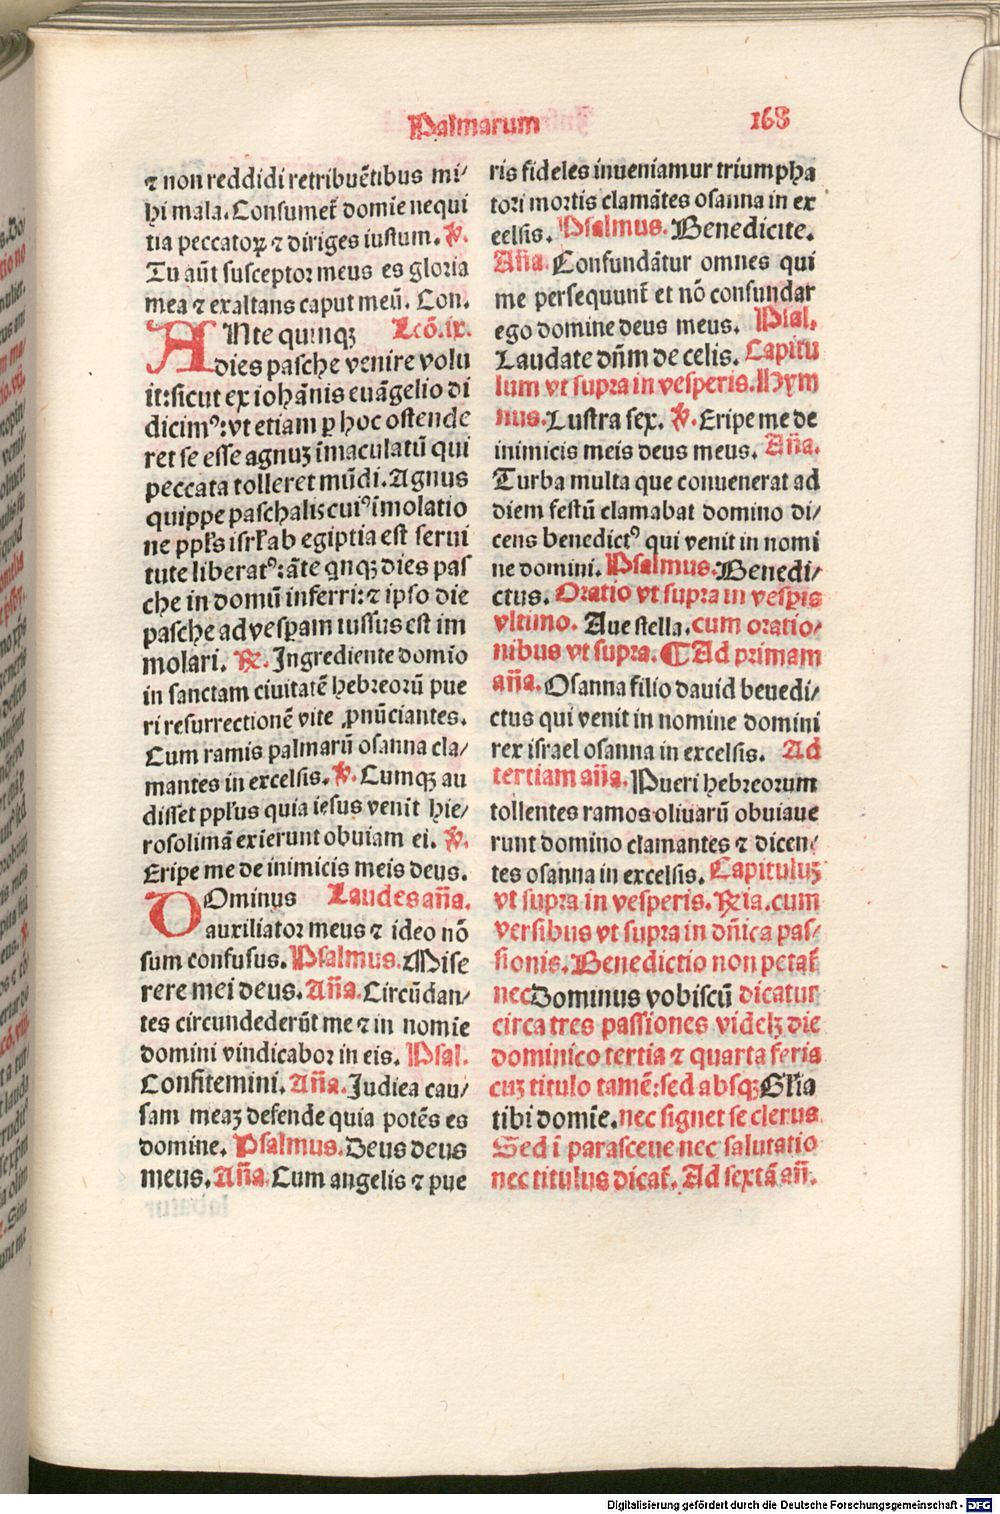 Palmarum 168
⁊ non reddidi retribuētibus mi/
hi mala. Consumet᷑ domīe nequi
tia peccatoꝝ ⁊ diriges iustum. ℣.
Tu aūt susceptor meus es gloria
mea ⁊ exaltans caput meū. Con.
ANte quinqꝫ Lcō. ix.
dies pasche venire volu
it: sicut ex iohānis euāgelio di
dicimꝰ: vt etiam ꝑ hoc ostende
ret se esse agnuꝫ īmaculatū qui
peccata tolleret mūdi. Agnus
quippe paschalis cuiꝰ īmolatio
ne ppl̄s isrl̄ ab egiptia est serui
tute liberatꝰ: āte qnqꝫ dies pas
che in domū inferri: ⁊ ipso die
pasche ad vesꝑam iussus est im
molari. ℟. Ingrediente domīo
in sanctam ciuitatē hebreorū pue
ri resurrectionē vite ꝓnūciantes.
Cum ramis palmarū osanna cla/
mantes in excelsis. ℣. Cumqꝫ au
disset ppl̄us quia iesus venit hie/
rosolimā exierunt obuiam ei. ℣.
Eripe me de inimicis meis deus.
DOminus Laudes añā.
auxiliator meus ⁊ ideo nō
sum confusus. Psalmus. Mise
rere mei deus. Añā. Circūdan/
tes circundederūt me ⁊ in nomīe
domini vindicabor in eis. Psal.
Confitemini. Añā. Judica cau/
sam meaꝫ defende quia potēs es
domine. Psalmus. Deus deus
meus. Añā. Cum angelis ⁊ pue
ris fideles inueniamur triumpha
tori mortis clamātes osanna in ex
celsis. Psalmus. Benedicite.
Añā. Confundātur omnes qui
me persequunt᷑ et nō confundar
ego domine deus meus. Psal.
Laudate dn̄m de celis. Capitu
lum vt supra in vesperis. Hym
nus. Lustra sex. ℣. Eripe me de
inimicis meis deus meus. Añā.
Turba multa que conuenerat ad
diem festū clamabat domino di/
cens benedictꝰ qui venit in nomi
ne domini. Psalmus. Benedi/
ctus. Oratio vt supra in vesꝑis
vltimo. Aue stella. cum oratio/
nibus vt supra. ¶ Ad primam
añā. Osanna filio dauid benedi/
ctus qui venit in nomine domini
rex israel osanna in excelsis. Ad
tertiam añā. Pueri hebreorum
tollentes ramos oliuarū obuiaue
runt domino clamantes ⁊ dicen/
tes osanna in excelsis. Capituluꝫ
vt supra in vesperis. ℟ia. cum
versibus vt supra in dn̄ica pas/
sionis. Benedictio non petat᷑
nec Dominus vobiscū dicatur
circa tres passiones videlꝫ die
dominico tertia ⁊ quarta feria
cuꝫ titulo tamē: sed absqꝫ Gl̄ia
tibi domīe. nec signet se clerus
Sed ī parasceue nec salutatio
nec titulus dicat᷑. Ad sextā añ.
Digitalisierung gefördert durch die Deutsche Forschungsgemeinschaft - DFG